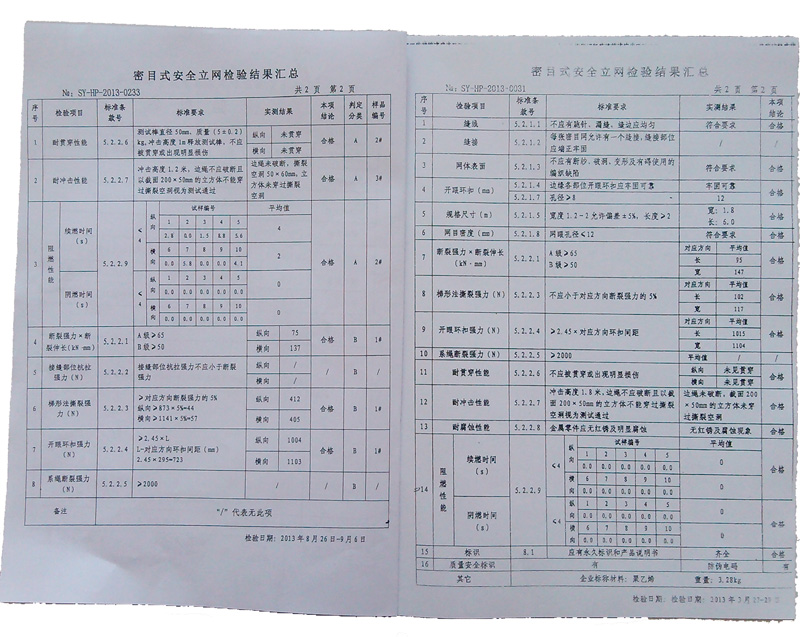 密目式安全立网检验结果汇总
№: SY-HP-2013-0233 共 2 页 第 2 页
序号 检验项目 标准条款号 标准要求 实测结果 本项结论 判定分类 样品编号
1 耐贯穿性能 5.2.2.6 测试棒直径50mm、质量(5±0.2)kg,冲击高度1m释放测试棒,不应被贯穿或出现明显损伤 纵向 未贯穿 合格 A 2#
横向 未贯穿
2 耐冲击性能 5.2.2.7 冲击高度1.2米,边绳不应破断且以截面200×50mm的立方体不能穿过撕裂空洞视为测试通过 边绳未破断,撕裂空洞50×60mm,立方体未穿过撕裂空洞 合格 A 3#
3 阻燃性能 续燃时间(s) 5.2.2.9 ≤4 试样编号 平均值 合格 A 2#
纵向 1 2 3 4 5 4
2.8 0.0 5.8
横向 6 7 8 9 10 2
0.0 5.8 0.0 0.0 4.1
阴燃时间(s) ≤4 纵向 1 2 3 4 5 0
0.0 0.0 0.0 0.0 0.0
横向 6 7 8 9 10 0
0.0 0.0 0.0 0.0 0.0
4 断裂强力×断裂伸长(kN·mm) 5.2.2.1 A级≥65 纵向 75 合格 B 1#
B级≥50 横向 137
5 接缝部位抗拉强力(N) 5.2.2.2 接缝部位抗拉强力不应小于断裂强力 纵向 / / B /
横向 /
6 梯形法撕裂强力(N) 5.2.2.3 ≥对应方向断裂强力的5% 纵向 412 合格 B 1#
纵向≥873×5%=44
横向≥1141×5%=57 横向 405
7 开眼环扣强力(N) 5.2.2.4 ≥2.45×L 纵向 1004 合格 B 1#
L-对应方向环扣间距(mm)
2.45×295=723 横向 1103
8 系绳断裂强力(N) 5.2.2.5 ≥2000 / / B /
备注 "/" 代表无此项
检验日期: 2013年8月26日-9月6日
密目式安全立网检验结果汇总
№: SY-HP-2013-0031 共 2 页 第 2 页
序号 检验项目 标准条款号 标准要求 实测结果 本项结论
1 缝线 5.2.1.1 不应有跳针、漏缝,缝边应均匀 符合要求 合格
2 缝接 5.2.1.2 每张密目网允许有一个缝接,缝接部位应端正牢固 / /
3 网体表面 5.2.1.3 不应有断纱、破洞、变形及有碍使用的编织缺陷 符合要求 合格
4 开眼环扣(mm) 5.2.1.4 边缘各部位开眼环扣应牢固可靠 牢固可靠 合格
5.2.1.7 孔径≥8 12
5 规格尺寸(m) 5.2.1.5 宽度1.2-2允许偏差±5%,长度≥2 宽: 1.8 合格
长: 6.0
6 网目密度(mm) 5.2.1.8 网眼孔径≤12 符合要求 合格
7 断裂强力×断裂伸长(kN·mm) 5.2.2.1 A级≥65 对应方向 平均值 合格
B级≥50 长 95
宽 147
8 梯形法撕裂强力(N) 5.2.2.3 不应小于对应方向断裂强力的5% 对应方向 平均值 合格
长 102
宽 117
9 开眼环扣强力(N) 5.2.2.4 ≥2.45×对应方向环扣间距 对应方向 平均值 合格
长 1015
宽 1104
10 系绳断裂强力(N) 5.2.2.5 ≥2000 平均值 / /
11 耐贯穿性能 5.2.2.6 不应被贯穿或出现明显损伤 纵向 未见贯穿 合格
横向 未见贯穿
12 耐冲击性能 5.2.2.7 冲击高度1.8米,边绳不应破断且以截面200×50mm的立方体不能穿过撕裂空洞视为测试通过 边绳未破断,截面200×50mm的立方体未穿过撕裂空洞 合格
13 耐腐蚀性能 5.2.2.8 金属零件应无红锈及明显腐蚀 无红锈及腐蚀现象 合格
14 阻燃性能 续燃时间(s) 5.2.2.9 ≤4 试样编号 平均值 合格
纵向 1 2 3 4 5 0
0.0 0.0 0.0 0.0 0.0
横向 6 7 8 9 10 0
0.0 0.0 0.0 0.0 0.0
阴燃时间(s) ≤4 纵向 1 2 3 4 5 0
0.0 0.0 0.0 0.0 0.0
横向 6 7 8 9 10 0 合格
0.0 0.0 0.0 0.0 0.0
15 标识 8.1 应有永久标识和产品说明书 齐全 合格
16 质量安全标识 有 防伪电码 有
其它 企业标称材料: 聚乙烯 重量: 3.28kg
检验日期: 检验日期: 2013年3月